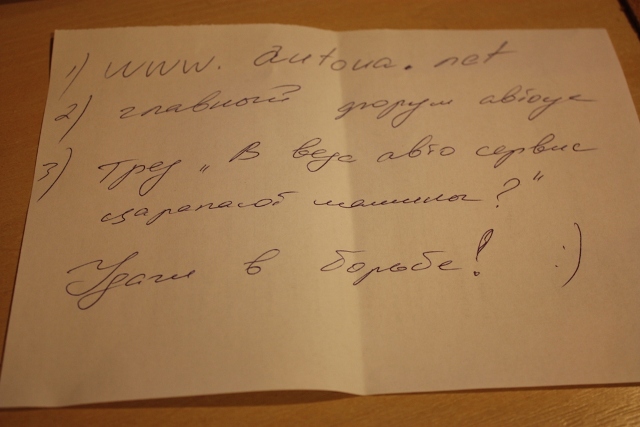 1) www. autoua. net
2) главный форум автоуа
3) тред „В веда авто сервис
царапают машины?"
Удачи в борьбе! :)